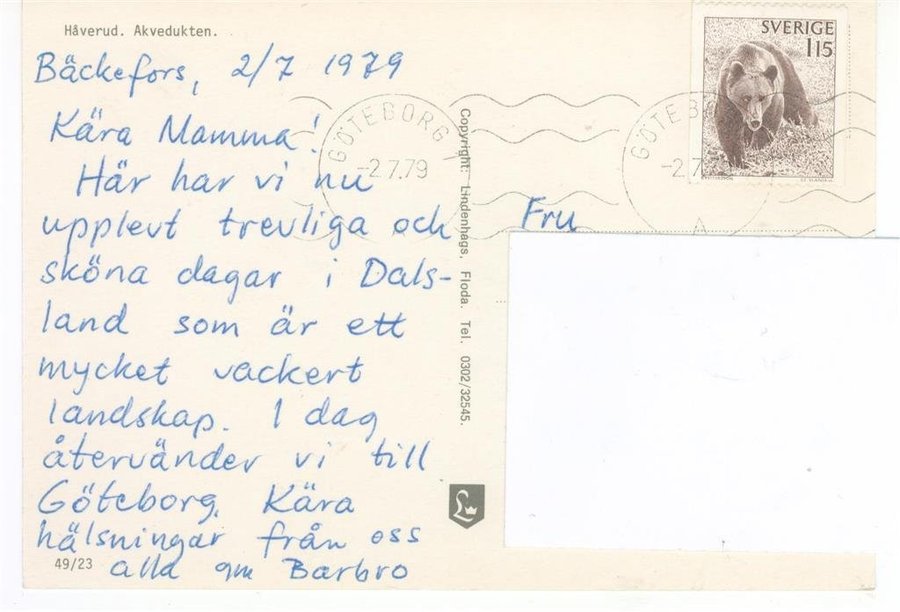 Håverud. Akvedukten.
Bäckefors, 2/7 1979
Kära Mamma!
Här har vi nu
upplevt trevliga och
sköna dagar i Dals-
land som är ett
mycket vackert
landskap. I dag
återvänder vi till
Göteborg. Kära
hälsningar från oss
alla gm Barbro
49/23
Copyright: Lindenhags. Floda. Tel. 0302/32545.
GÖTEBORG
-2.7.79
SVERIGE
115
GÖTEB
-2.7
A
Fru